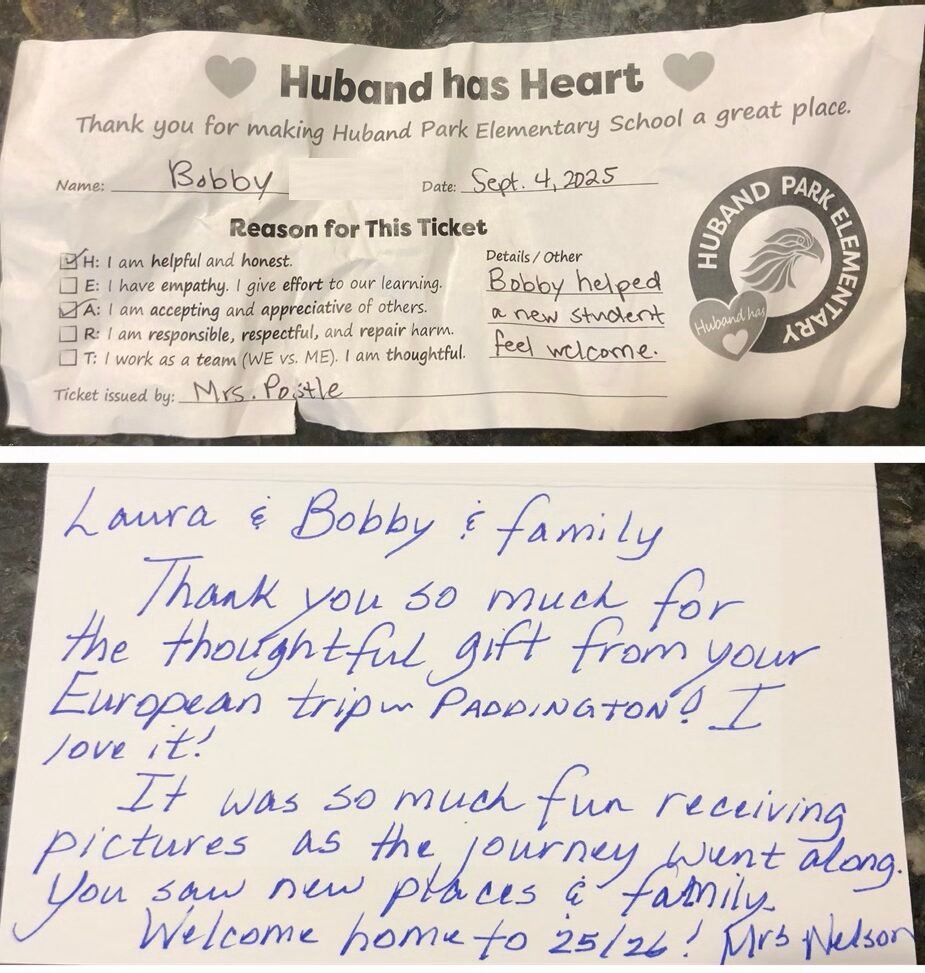 Huband has Heart
Thank you for making Huband Park Elementary School a great place.
Name: Bobby Date: Sept. 4, 2025
Reason for This Ticket
H: I am helpful and honest.
E: I have empathy. I give effort to our learning.
A: I am accepting and appreciative of others.
R: I am responsible, respectful, and repair harm.
T: I work as a team (WE vs. ME). I am thoughtful.
Details / Other
Bobby helped
a new student
feel welcome.
Ticket issued by: Mrs. Postle
HUBAND PARK ELEMENTARY
Huband has
Laura & Bobby & family
Thank you so much for
the thoughtful gift from your
European trip ~ PADDINGTON! I
love it!
It was so much fun receiving
pictures as the journey went along.
You saw new places & family.
Welcome home to 25/26! Mrs Nelson